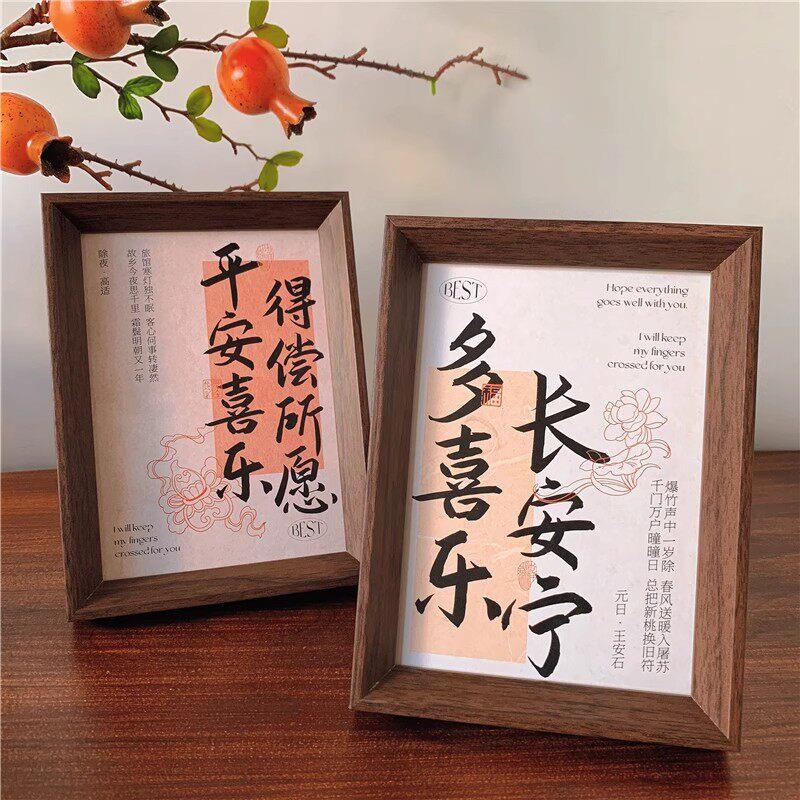 平安喜乐
得偿所愿
旅馆寒灯独不眠 客心何事转凄然
故乡今夜思千里 霜鬓明朝又一年
除夜·高适
I will keep
my fingers
crossed for you
BEST
BEST
Hope everything
goes well with you.
I will keep
my fingers
crossed for you
多喜乐
长安宁
福
爆竹声中一岁除 春风送暖入屠苏
千门万户曈曈日 总把新桃换旧符
元日·王安石